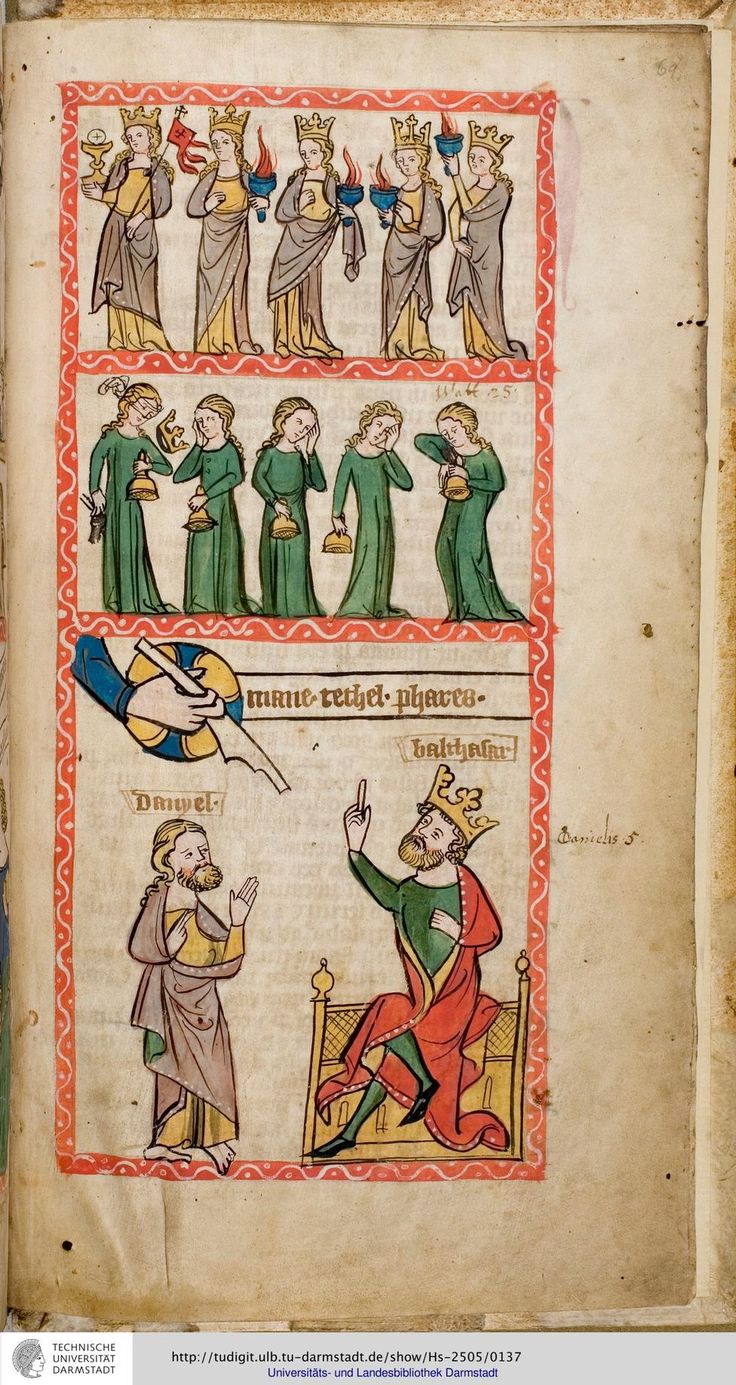 69
Matt 25.
mane · techel · phares ·
balthasar
Danyel ·
Danielis 5.
TECHNISCHE
UNIVERSITÄT
DARMSTADT
http://tudigit.ulb.tu-darmstadt.de/show/Hs-2505/0137
Universitäts- und Landesbibliothek Darmstadt